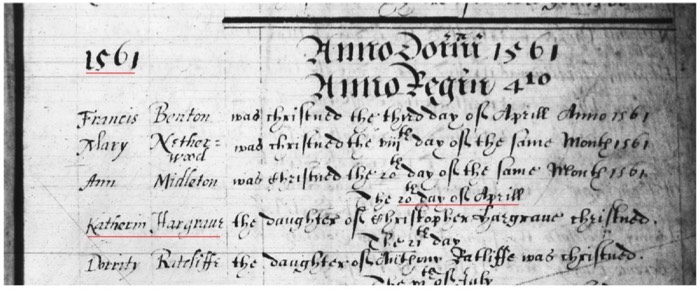 1561
Anno Domini 1561
Anno Regin 4to
Francis Benton was christned the third day of Aprill Anno 1561
Mary Nether= was christned the viiith day of the same Month 1561
wood
Ann Midleton was christned the 20th day of the same Month 1561
The 20th day of Aprill
Katherin Hargraue the daughter of Christopher Hargraue christned.
The 21th day
Dority Ratcliffe the daughter of Anthony Ratliffe was christned.
of July